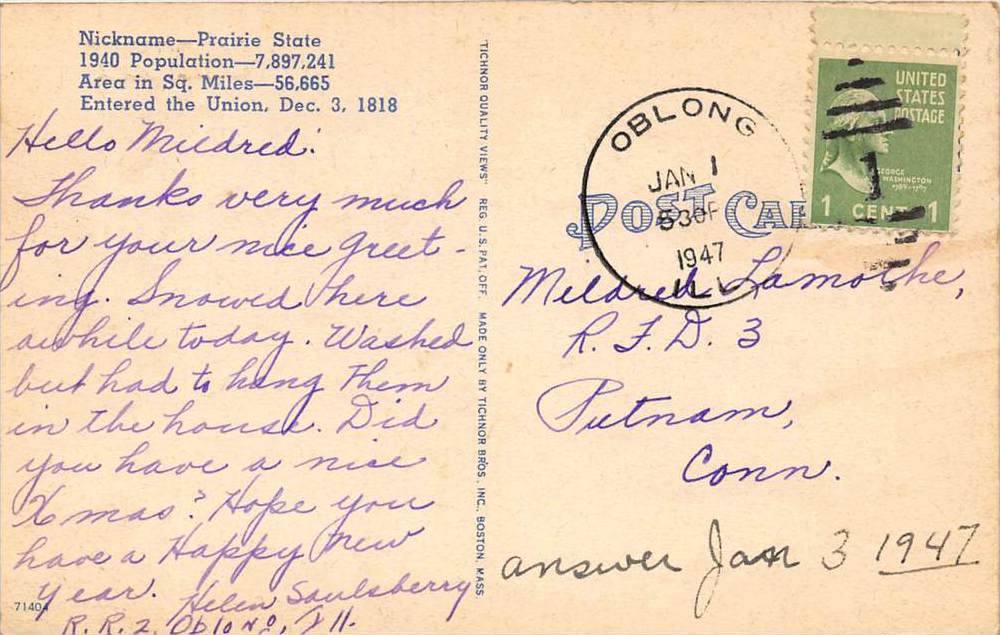 Nickname—Prairie State
1940 Population—7,897,241
Area in Sq. Miles—56,665
Entered the Union, Dec. 3, 1818
Hello Mildred:
Thanks very much
for your nice greet-
ing. Snowed here
awhile today. Washed
but had to hang them
in the house. Did
you have a nice
Xmas? Hope you
have a Happy New
Year. Helen Saulsberry
R.R.2, Oblong, Ill.
71404
"TICHNOR QUALITY VIEWS" REG. U.S. PAT. OFF. MADE ONLY BY TICHNOR BROS., INC., BOSTON, MASS.
OBLONG
JAN 1
530P
1947
ILL
POST CAR
UNITED
STATES
POSTAGE
GEORGE
WASHINGTON
1 CENT 1
Mildred Lamothe,
R.F.D. 3
Putnam,
Conn.
answer Jan 3 1947